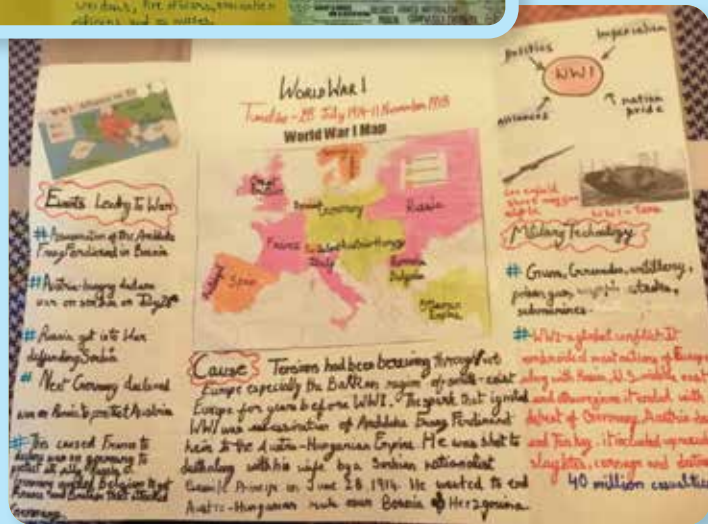 officers and so nurses.
World War I
Timeline - 28 July 1914 - 11 November 1918
World War I Map
Great
France
Germany
Russia
Austria-Hungary
Italy
Spain
Portugal
Romania
Bulgaria
Ottoman
Empire
Events Leading To War
# Assassination of the Archduke
Franz Ferdinand in Bosnia
# Austria-hungary declare
war on serbia on July 28th
# Russia got into War
defending Serbia
# Next Germany declared
war on Russia to protect Austria
# This caused France to
declare war on germany to
Cause Tensions had been brewing throughout
Europe especially the Balkan region of south-east
Europe for years before WWI. The spark that ignited
WWI was assassination of Archduke Franz Ferdinand
heir to the Austria-Hungarian Empire. He was shot to
death along with his wife by a Serbian nationalist
Gavrilo Princip on June 28, 1914. He wanted to end
Austro-Hungarian rule over Bosnia & Herzgovina.
politics
Imperialism
WWI
Alliances
nation
pride
Lee enfield
short magazine
WWI - Tank
Military Technology
# Guns, Grenades, artillery,
poison gas, attacks,
submarines.
# WWI - a global conflict. It
embroided most nations of Europe
along with Russia, U.S, middle east
and it ended with
defeat of Germany, Austria
and Turkey. it included
slaughter, carnage and
40 million casualties